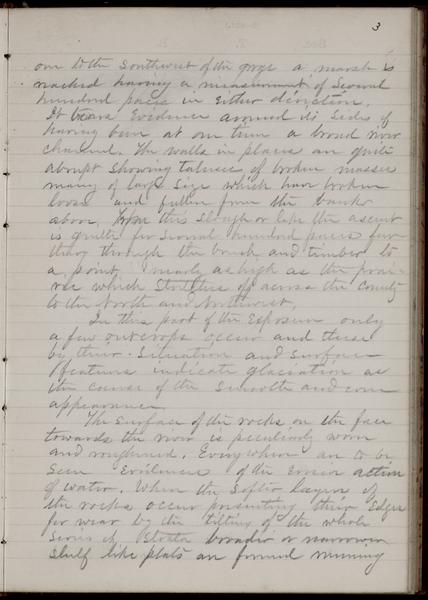 3
out to the southwest of the gorge a marsh is
reached having a measurement of several
hundred paces in either direction.
It bears evidence around its sides of
having been at one time a broad river
channel. The walls in places are quite
abrupt showing taluses of broken masses
many of large size which have broken
loose and fallen from the banks
above. From this slough or lake the ascent
is gentle for several hundred paces far
through the brush and timber to
a point nearly as high as the prai-
rie which stretches off across the county
to the North and Northwest.
In this part of the exposure only
a few outcrops occur and these
by their situation and surface
features indicate glaciation as
the cause of the smooth and even
appearance
The surface of the rocks on the face
towards the river is peculiarly worn
and roughened. Everywhere are to be
seen evidences of the erosive action
of water. When the softer layers of
the rocks occur presenting their edges
for wear by the tilting of the whole
series of strata broader or narrower
shelf like plats are formed running